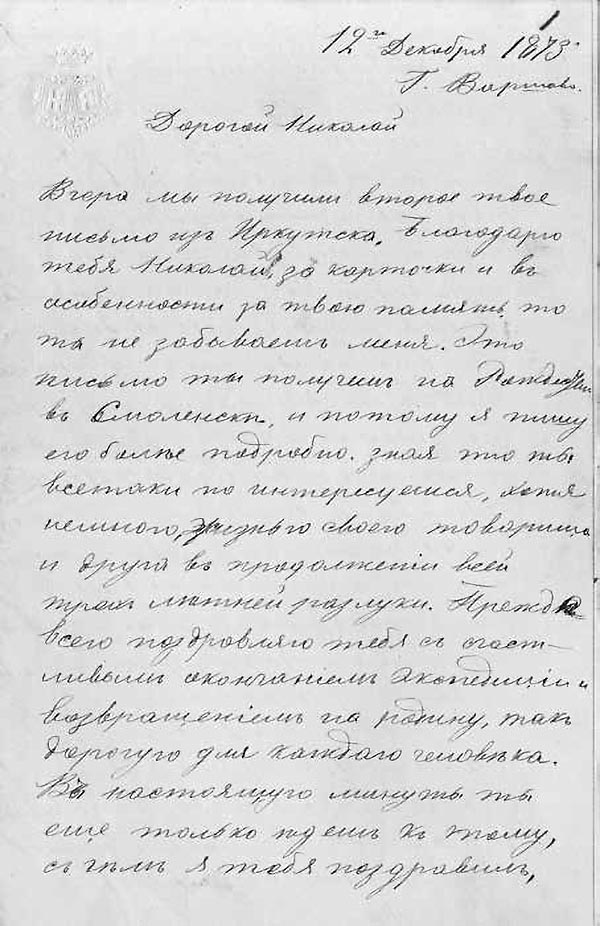 1
12го Декабря 1873
Г. Варшава.
Дорогой Николай
Вчера мы получили второе твое
письмо изъ Иркутска. Благодарю
тебя Николай, за карточки и въ
особенности за твою память, то
ты не забываешь меня. Это
письмо ты получишь на
въ Смоленски, и потому я пишу
его болѣе подробно. зная что ты
всетаки по интересуешся, хотя
немного, жизнью своего товарища
и друга въ продолженіи всей
трех лѣтней разлуки. Прежде
всего поздравляю тебя съ счаст-
ливымъ окончаніемъ экспедиціи и
возвращеніемъ на родину, такъ
дорогую для каждаго человѣка.
Въ настоящую минуту ты
еще только едешь къ тому,
съ чѣмъ я тебя поздравилъ,